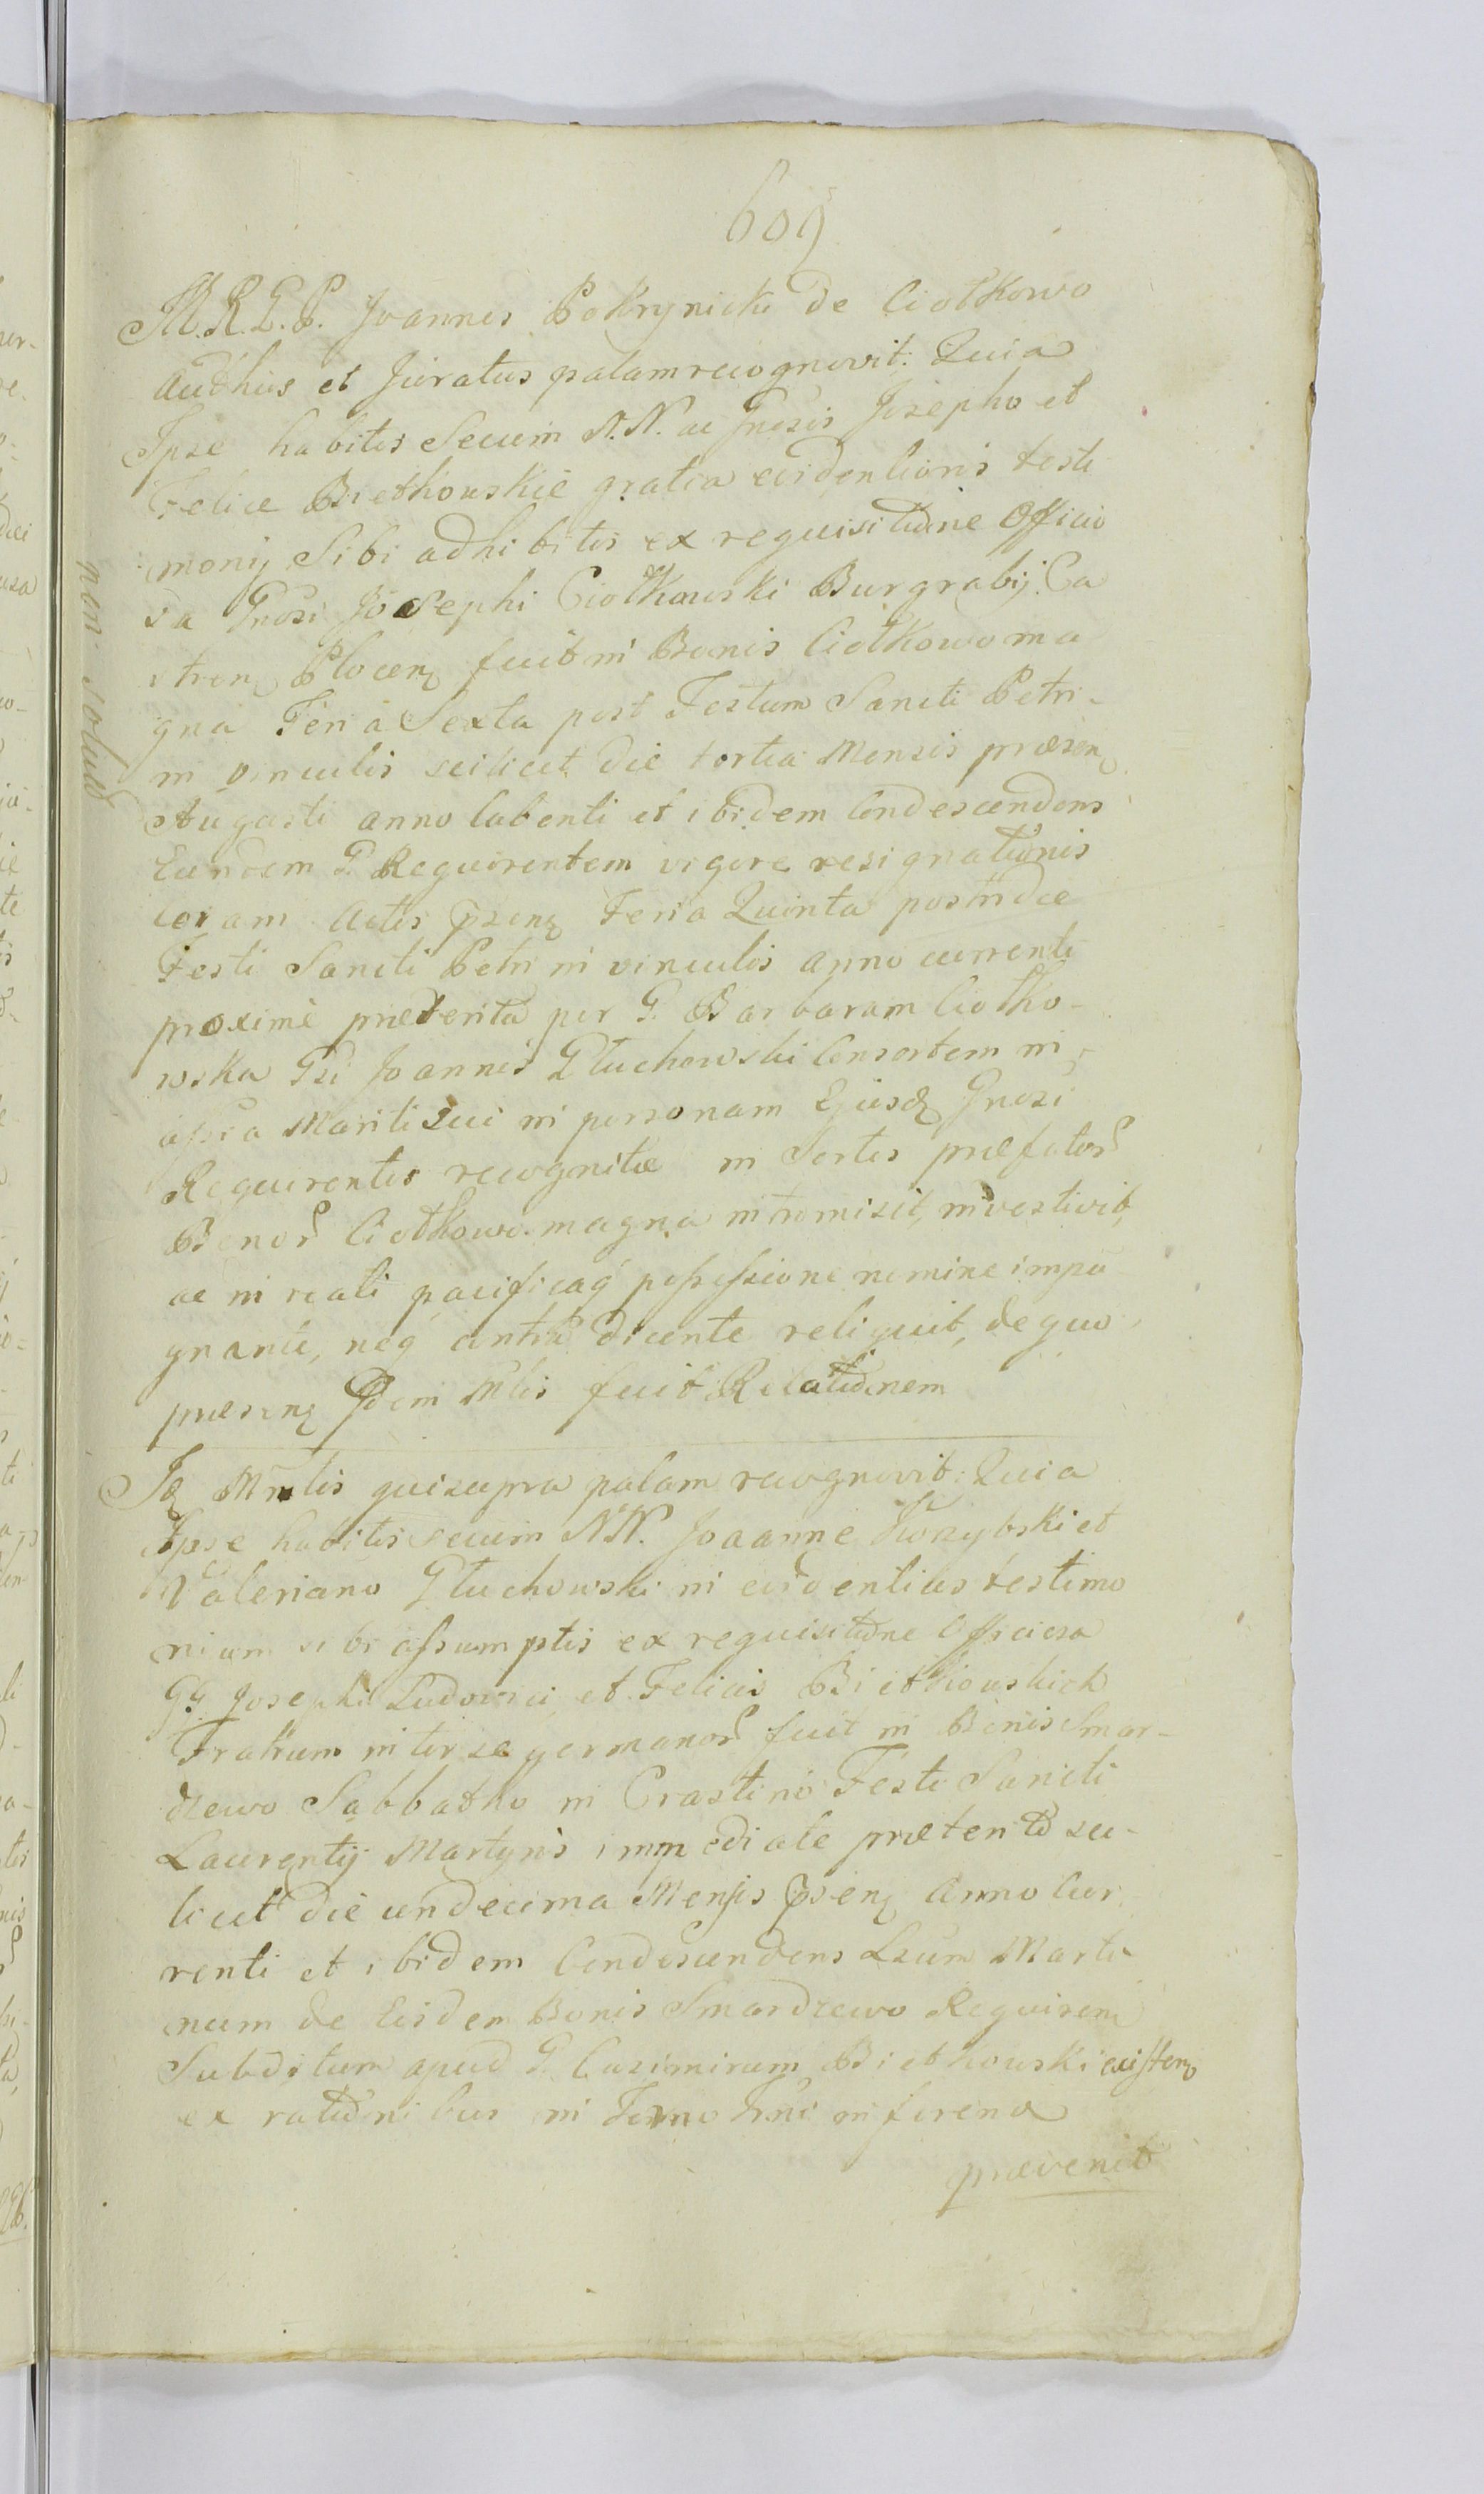 609
M.R.G.P. Joannes Pokrzynicki de Ciołkowo
Authus et Juratus palam recognovit: Quia
Ipse habitis Secum N.N. ac Gnosis Josepho et
Felice Biethowskie gratia evidentioris testi
monij Sibi adhibitis ex requisitione Officio
sa Gnosi Josephi Ciołkowski Burgrabij Ca
stren Plocen fuit in Bonis Ciołkowo ma
gna Feria Sexta post Festum Sancti Petri
in vinculis scilicet die tertia Mensis præsen
Augusti anno labenti et ibidem Condescendens
Eundem G. Requirentem vigore resignationis
Coram Actis psen Feria Quinta postridie
Festi Sancti Petri in vinculis anno currenti
proximè præterita per G. Barbaram Ciołko-
wska Gsi Joannis Głuchowski Consortem in
assa Mariti sui in personam Ejusd Gnosi
Requirentis recognitæ in Sortes præfator
Bonor Ciołkowo magna intromisit, investivit,
ac in reali pacificaq possessione nemine impu
gnante, neq contra dicente reliquit, de quo
præsen Idem Mlis fecit Relationem
Id Mntlis qui supra palam recognovit: Quia
Ipse habitis secum N.N. Joaanne
Valeriano Głuchowski in evidentius testimo
nium sibi assumptis ex requisitione Officiosa
GG. Josephi Ludovici et Felicis Biethowskich
Fratrum inter se germanor fuit in Bonis Smar-
dzewo Sabbatho in Crastino Festi Sancti
Laurentij Martyris immediate præterito sci-
licet die undecima Mensis psen Anno Cur
renti et ibidem Condescendens Lsum Marti
num de Eisdem Bonis Smardzewo Requiren
Subditum apud G. Casimirum Biethowski existen
ex rationibus in Termo hnc inferena
prævenit
non solud